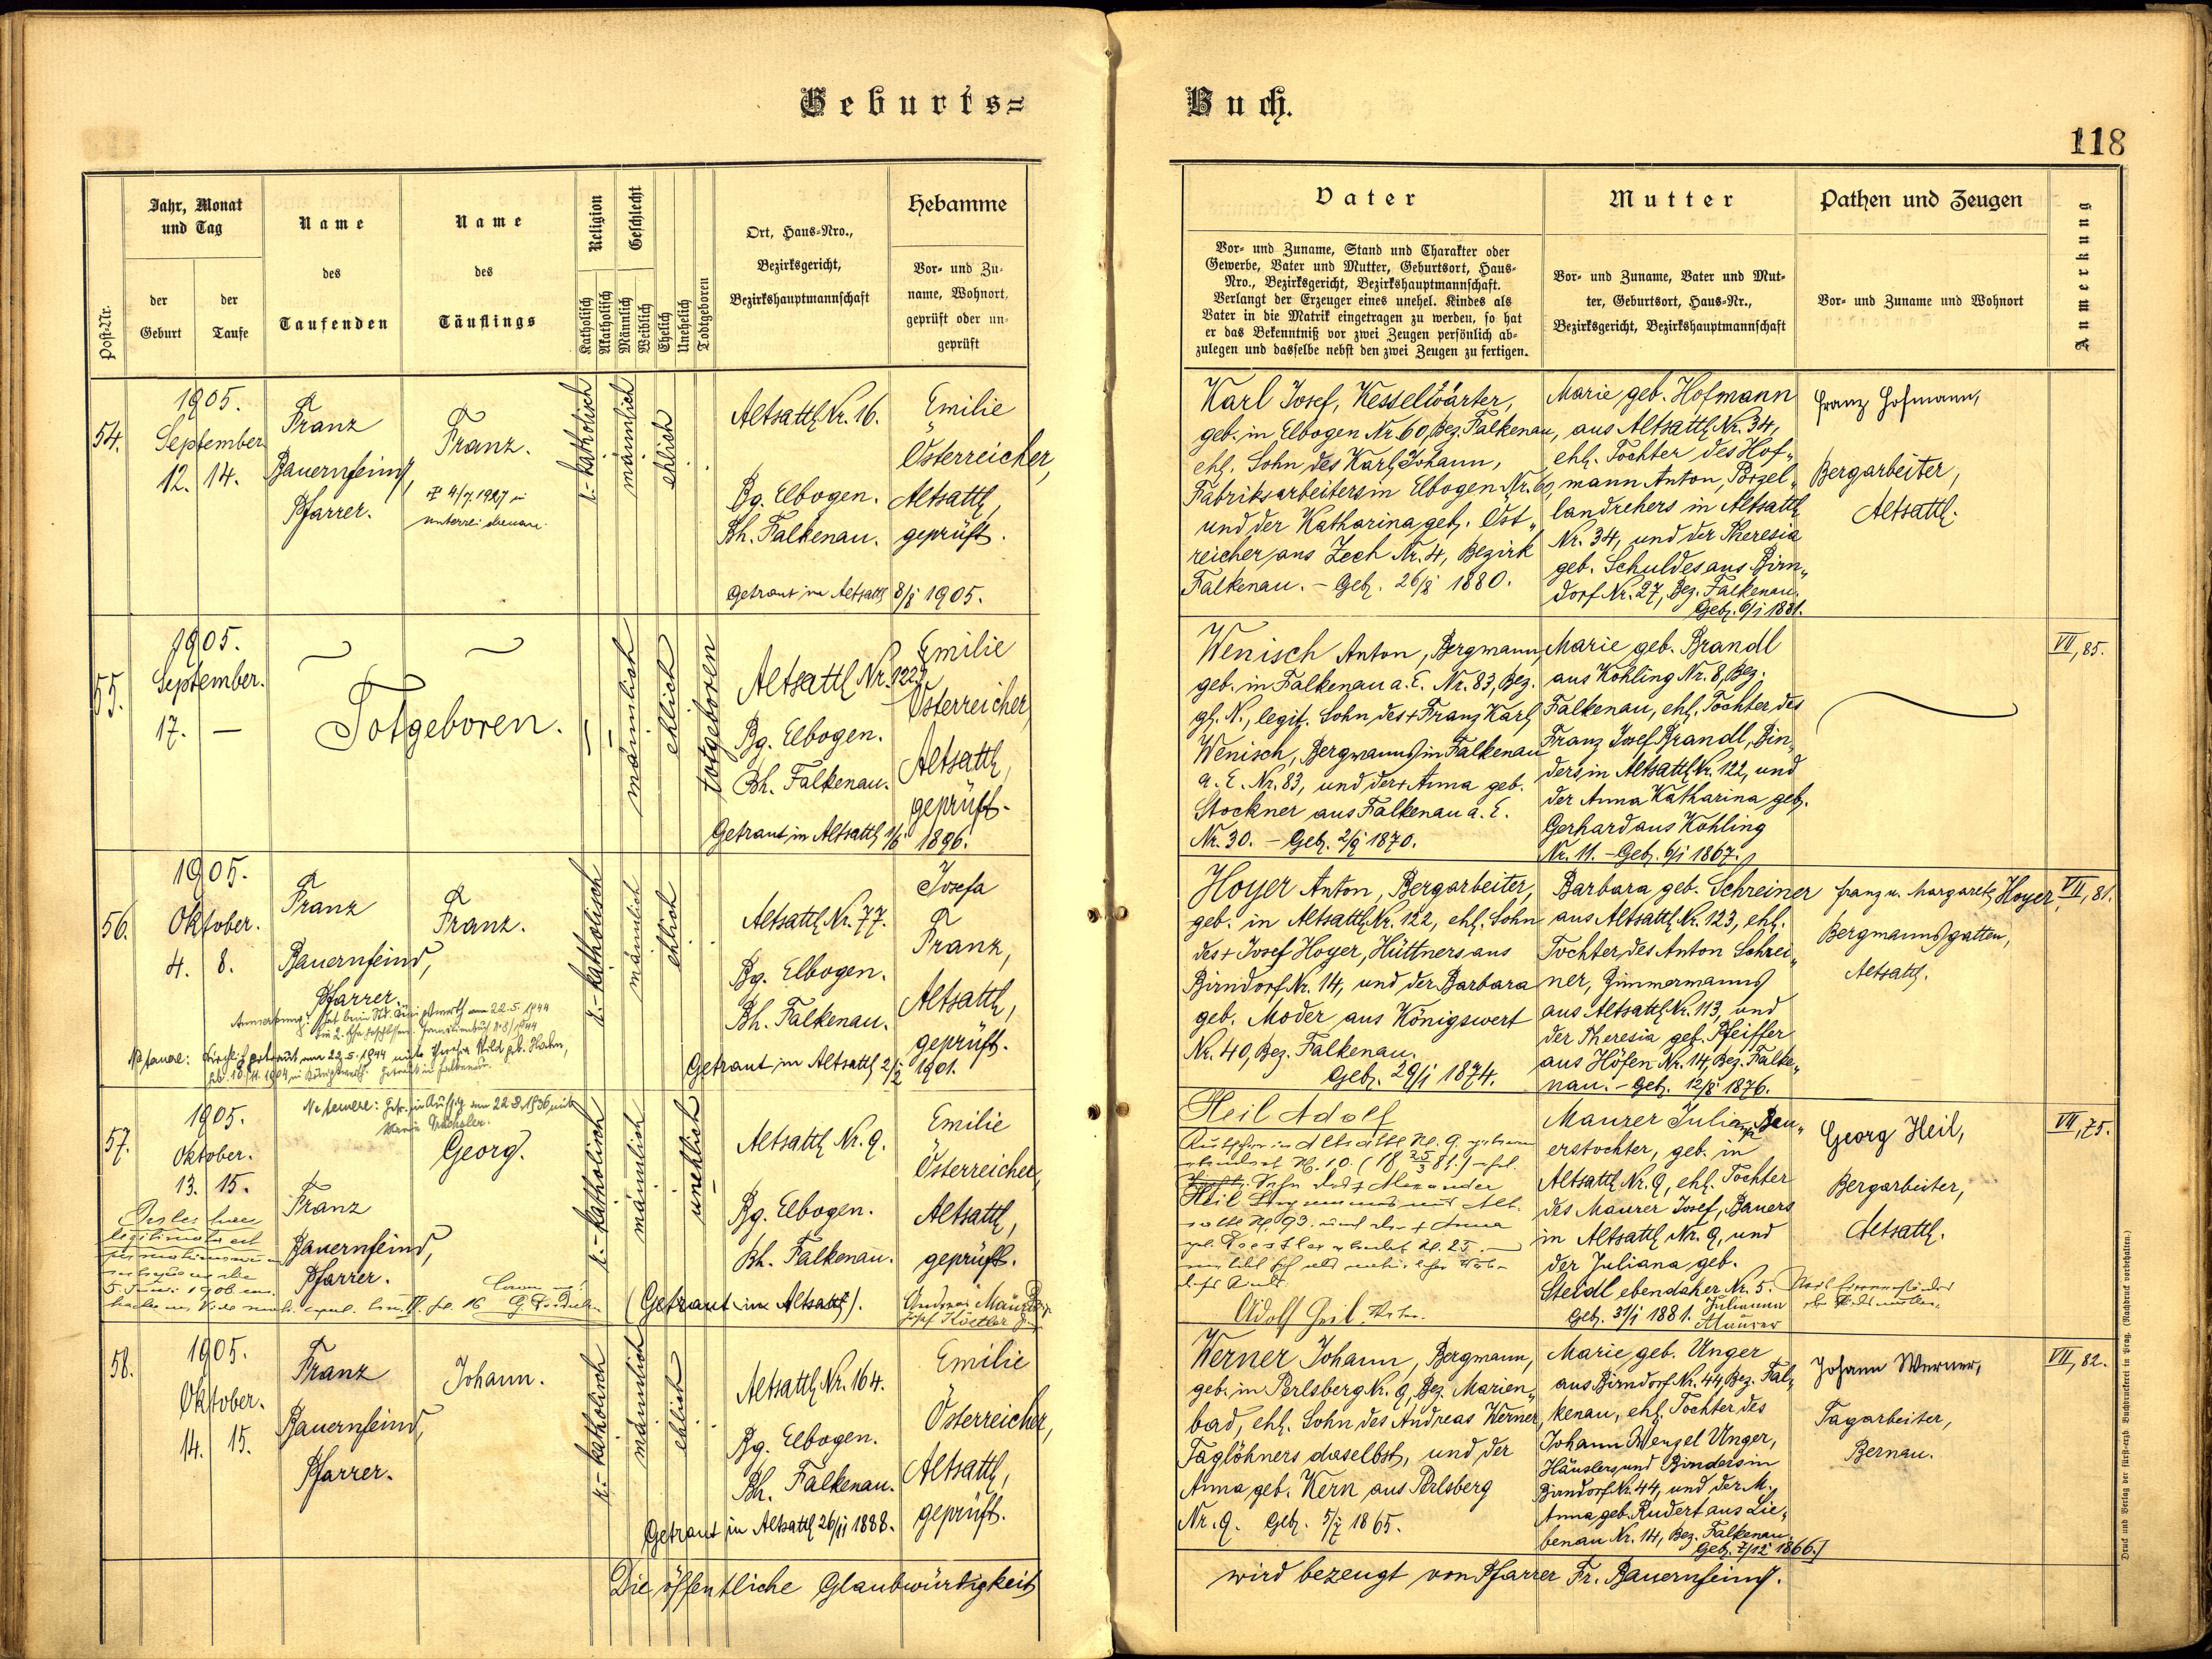 Geburts=
Buch.
118
Post-Nr.
Jahr, Monat
und Tag
der
Geburt
der
Taufe
Name
des
Taufenden
Name
des
Täuflings
Religion
Katholisch
Akatholisch
Geschlecht
Männlich
Weiblich
Ehelich
Unehelich
Todtgeboren
Ort, Haus-Nro.,
Bezirksgericht,
Bezirkshauptmannschaft
Hebamme
Vor- und Zu-
name, Wohnort,
geprüft oder un-
geprüft
Vater
Vor- und Zuname, Stand und Charakter oder
Gewerbe, Vater und Mutter, Geburtsort, Haus-
Nro., Bezirksgericht, Bezirkshauptmannschaft.
Verlangt der Erzeuger eines unehel. Kindes als
Vater in die Matrik eingetragen zu werden, so hat
er das Bekenntniß vor zwei Zeugen persönlich ab-
zulegen und dasselbe nebst den zwei Zeugen zu fertigen.
Mutter
Vor- und Zuname, Vater und Mut-
ter, Geburtsort, Haus-Nr.,
Bezirksgericht, Bezirkshauptmannschaft
Pathen und Zeugen
Vor- und Zuname und Wohnort
Anmerkung
54.
1905.
September
12. 14.
Franz
Bauernfeind,
Pfarrer.
Franz.
r.-katholisch
männlich
ehlich
Altsattl Nr. 16.
Bg. Elbogen.
Bh. Falkenau.
Getraut in Altsattl 8/8 1905.
Emilie
Österreicher,
Altsattl,
geprüft.
Karl Josef, Kesselwärter,
geb. in Elbogen Nr. 60, Bez. Falkenau,
ehl. Sohn des Karl Johann,
Fabriksarbeiters in Elbogen Nr. 60,
und der Katharina geb. Öst„
reicher aus Zech Nr. 4, Bezirk
Falkenau. – Geb. 26/8 1880.
Marie geb. Hofmann
aus Altsattl Nr. 34,
ehl. Tochter des Hof„
mann Anton, Porzel„
landrehers in Altsattl
Nr. 34, und der Theresia
geb. Schuldes aus Birn„
dorf Nr. 27, Bez. Falkenau.
Geb. 6/1 1881.
Franz Hofmann,
Bergarbeiter,
Altsattl.
55.
1905.
September.
17. —
Totgeboren.
männlich
ehlich
totgeboren
Altsattl Nr. 122.
Bg. Elbogen.
Bh. Falkenau.
Getraut in Altsattl 1896.
Emilie
Österreicher,
Altsattl,
geprüft.
Wenisch Anton, Bergmann,
geb. in Falkenau a. E. Nr. 83, Bez.
gl. N., legit. Sohn des + Franz Karl
Wenisch, Bergmanns in Falkenau
a. E. Nr. 83, und der + Anna geb.
Stockner aus Falkenau a. E.
Nr. 30. – Geb. 2/9 1870.
Marie geb. Brandl
aus Kohling Nr. 8, Bez.
Falkenau, ehl. Tochter des
Franz Josef Brandl, Bin„
ders in Altsattl Nr. 122, und
der Anna Katharina geb.
Gerhard aus Kohling
Nr. 11. – Geb. 6/1 1867.
VII, 85.
56.
1905.
Oktober.
4. 8.
Franz
Bauernfeind,
Pfarrer.
Franz.
r.-katholisch
männlich
ehlich
Altsattl Nr. 77.
Bg. Elbogen.
Bh. Falkenau.
Getraut in Altsattl 2/2 1901.
Josefa
Franz,
Altsattl,
geprüft.
Hoyer Anton, Bergarbeiter,
geb. in Altsattl Nr. 122, ehl. Sohn
des + Josef Hoyer, Hüttners aus
Birndorf Nr. 14, und der Barbara
geb. Moder aus Königswert
Nr. 40, Bez. Falkenau.
Geb. 29/1 1874.
Barbara geb. Schreiner
aus Altsattl Nr. 123, ehl.
Tochter des Anton Schrei„
ner, Zimmermanns
aus Altsattl Nr. 113, und
der Theresia geb. Pfeiffer
aus Höfen Nr. 14, Bez. Falke„
nau. – Geb. 12/8 1876.
Franz u. Margareth Hoyer,
Bergmannsgatten,
Altsattl.
VII, 81.
57.
1905.
Oktober.
13. 15.
Franz
Bauernfeind,
Pfarrer.
Ne temere: Getr. in Aussig am 22.8.1936 mit
Georg.
r.-katholisch
männlich
unehlich
Altsattl Nr. 9.
Bg. Elbogen.
Bh. Falkenau.
(Getraut in Altsattl).
Emilie
Österreicher,
Altsattl,
geprüft.
Heil Adolf
Adolf Heil, Vater.
Maurer Juliana, Bau„
erstochter, geb. in
Altsattl Nr. 9, ehl. Tochter
des Maurer Josef, Bauers
in Altsattl Nr. 9, und
der Juliana geb.
Steidl ebendaher Nr. 5.
Geb. 31/1 1881.
Julianna
Maurer
Georg Heil,
Bergarbeiter,
Altsattl.
VII, 75.
58.
1905.
Oktober.
14. 15.
Franz
Bauernfeind,
Pfarrer.
Johann.
r.-katholisch
männlich
ehlich
Altsattl Nr. 164.
Bg. Elbogen.
Bh. Falkenau.
Getraut in Altsattl 26/11 1888.
Emilie
Österreicher,
Altsattl,
geprüft.
Werner Johann, Bergmann,
geb. in Perlsberg Nr. 9, Bez. Marien„
bad, ehl. Sohn des Andreas Werner,
Taglöhners daselbst, und der
Anna geb. Kern aus Perlsberg
Nr. 9. Geb. 5/7 1865.
Marie geb. Unger
aus Birndorf Nr. 44, Bez. Fal„
kenau, ehl. Tochter des
Johann Wenzel Unger,
Häuslers und Binders in
Birndorf Nr. 44, und der M.
Anna geb. Rudert aus Lie„
benau Nr. 14, Bez. Falkenau.
Geb. 7/12 1866.
Johann Werner,
Tagarbeiter,
Bernau.
VII, 82.
Die öffentliche Glaubwürdigkeit
wird bezeugt von Pfarrer Fr. Bauernfeind.
Druck und Verlag der fürst-erzb. Buchdruckerei in Prag. (Nachdruck vorbehalten.)